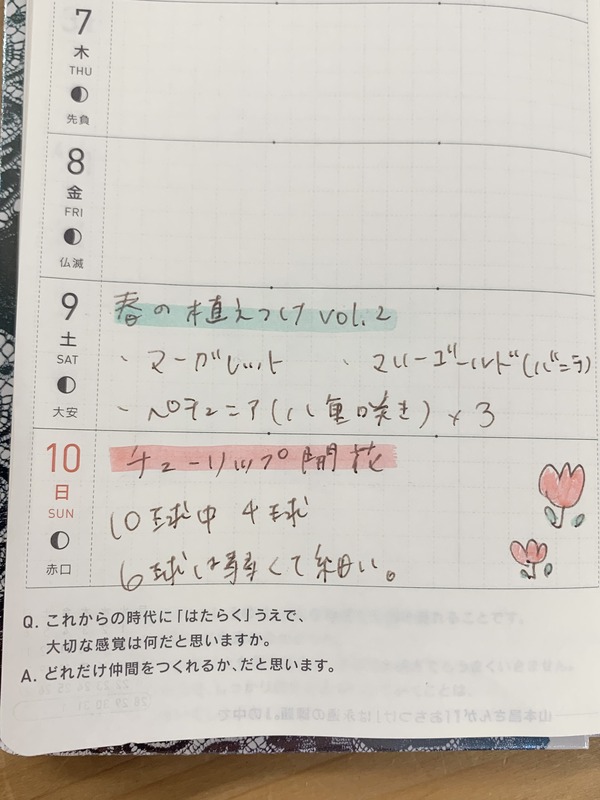 7
木
THU
先負
8
金
FRI
仏滅
9
土
SAT
大安
春の植えつけ vol.2
・マーガレット ・マリーゴールド(バニラ)
・ペチュニア(八重咲き)×3
10
日
SUN
赤口
チューリップ開花
10球中 4球
6球は弱くて細い。
Q. これからの時代に「はたらく」うえで、
大切な感覚は何だと思いますか。
A. どれだけ仲間をつくれるか、だと思います。